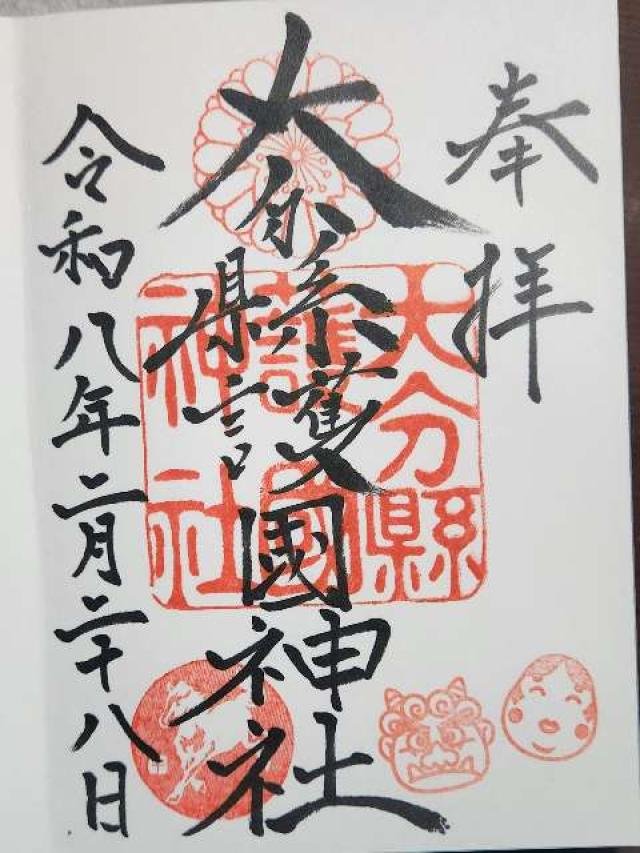 奉拝
大分縣護國神社
大分縣
護國
神社
令和八年二月二十八日